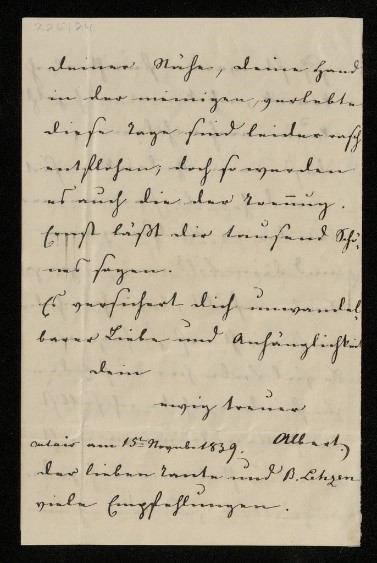 deiner Nähe, deine Hand
in der meinigen, verlebte
diese Tage sind leider rasch
entflohen, doch so werden
es auch die der Trennug.
Ernst läßt dir tausend Schö-
nes sagen.
Es versichert dich unwandel-
barer Liebe und Anhänglichkeit
dein
ewig treuer
Calais am 15ten Novbr 1839. Albert.
der lieben Tante und B. Lehzen
viele Empfehlungen.